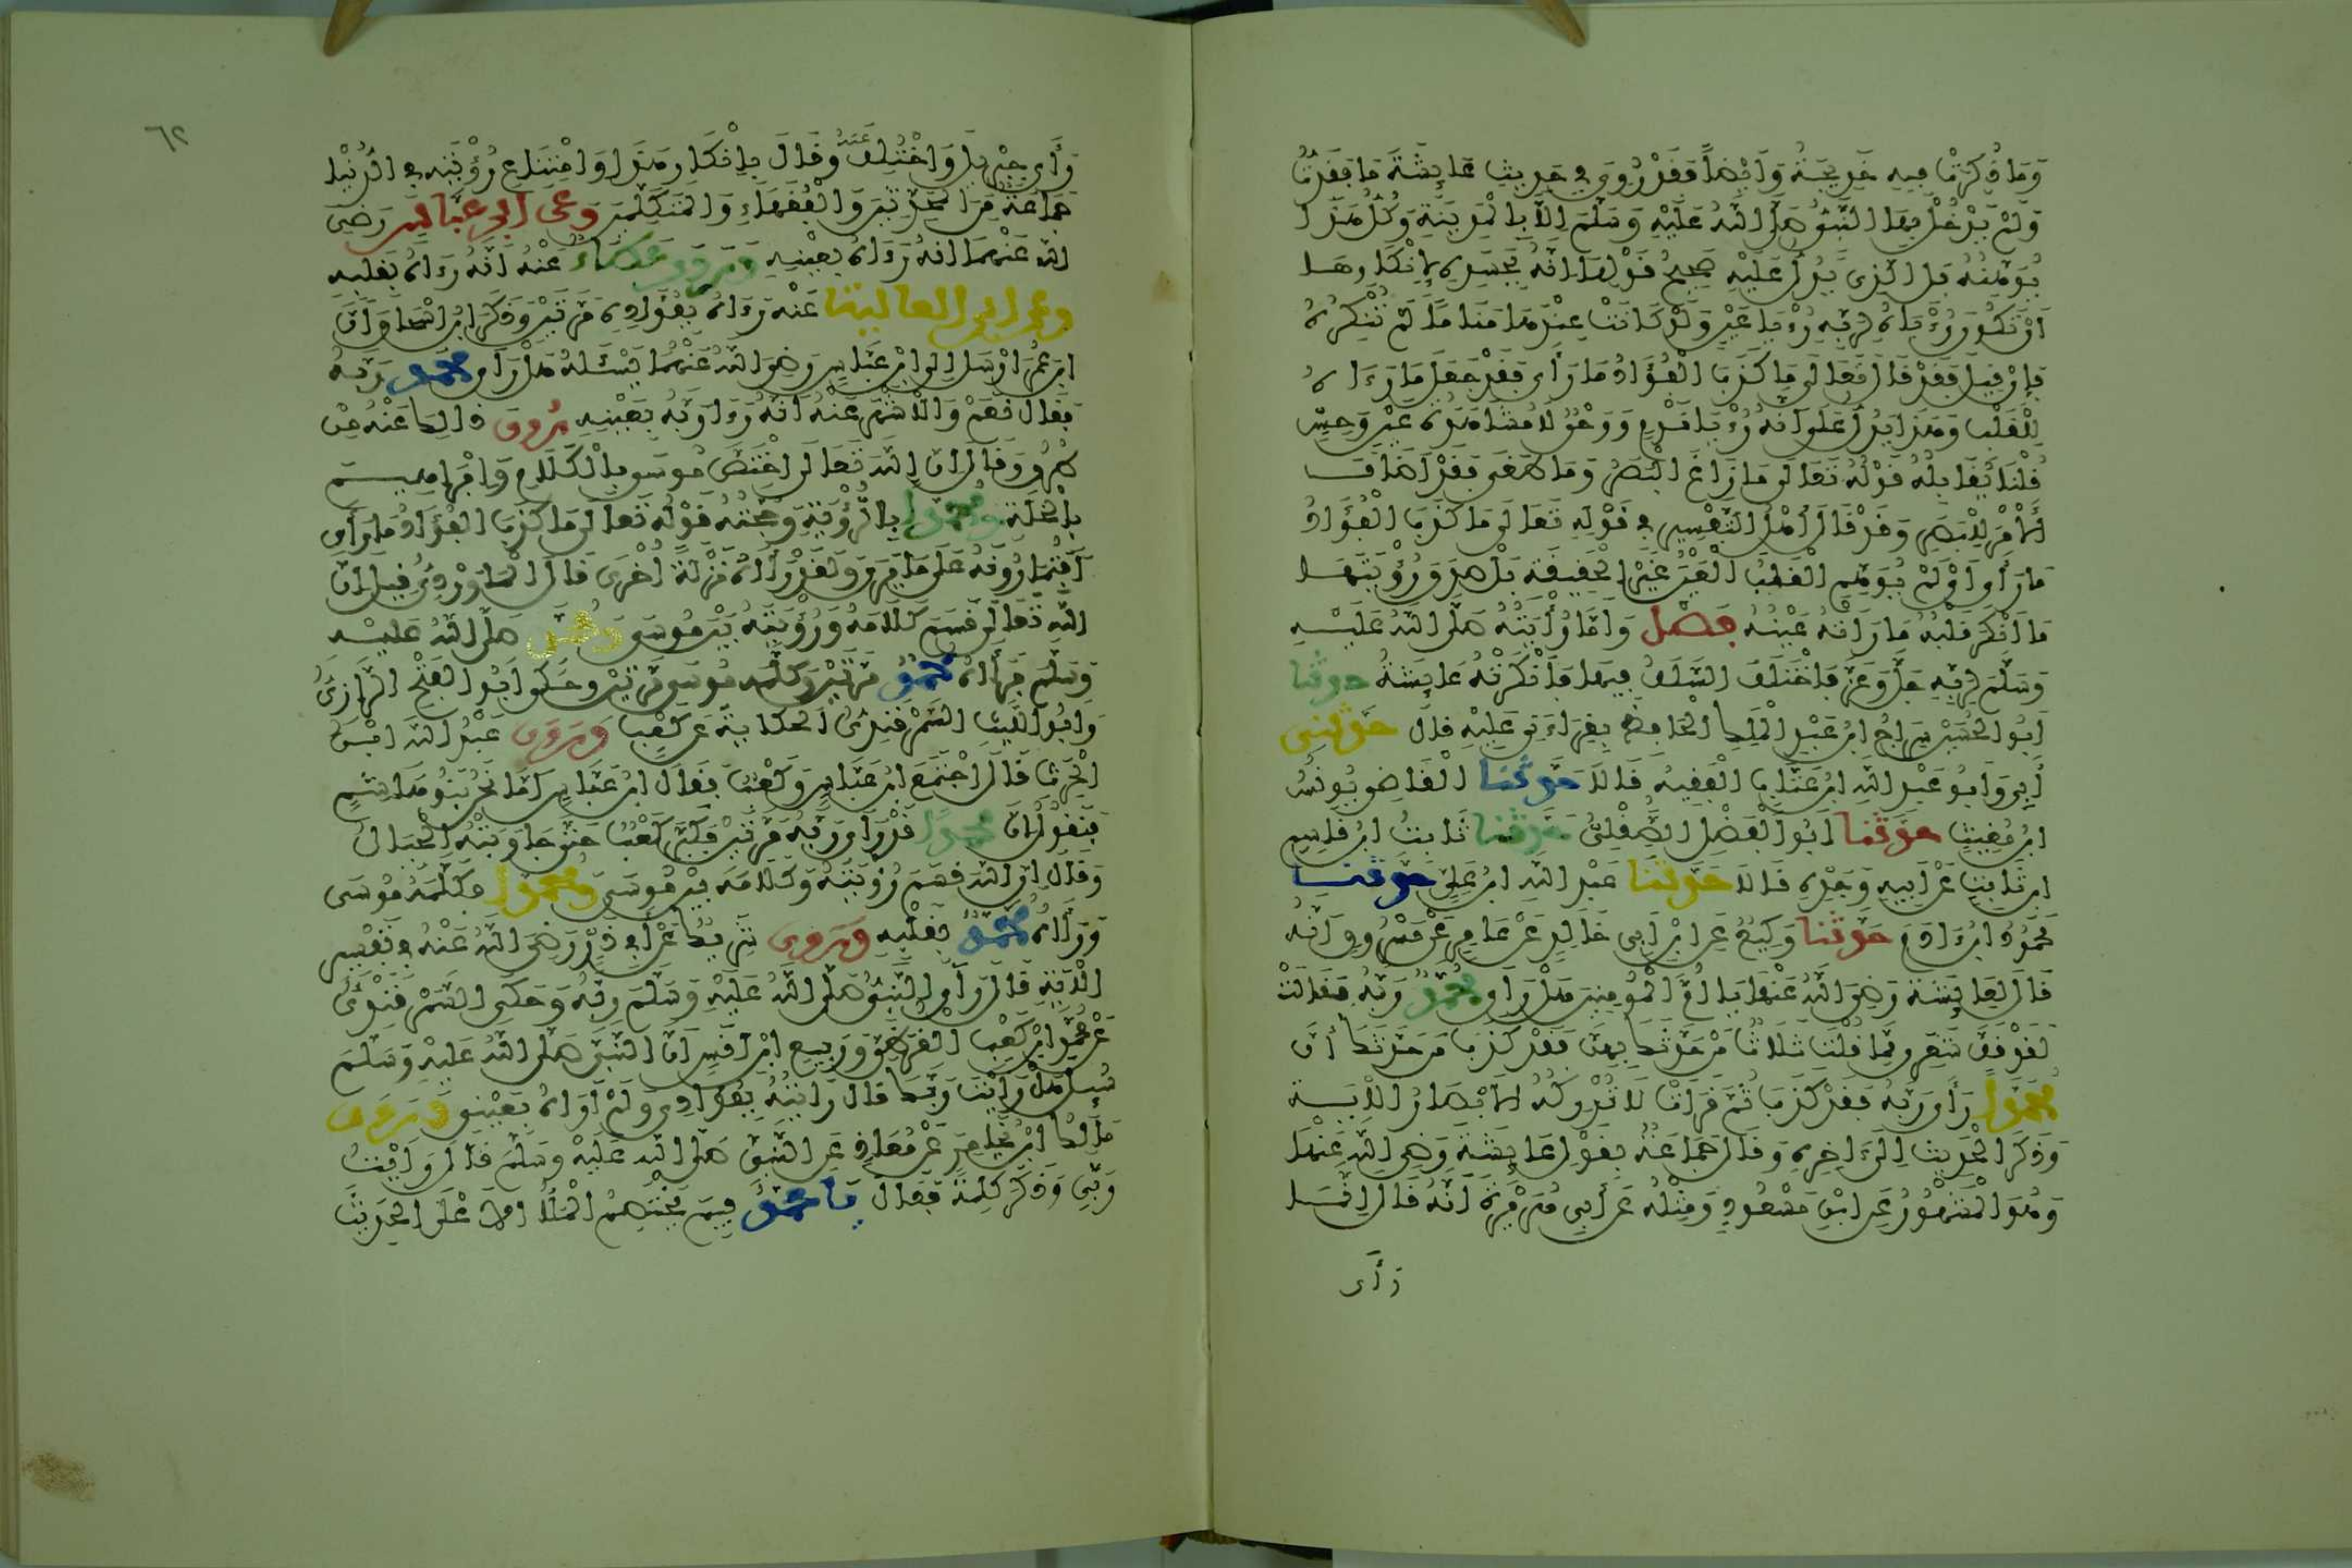 وَمَا ذُكِرَتْ فِيهِ خَدِيجَةُ وَأَيْضاً فَقَدْ رُوِيَ فِي حَدِيثِ عَائِشَةَ مَا فَقَدْتُ
وَلَمْ يَدْخُلْ بِهَا النَّبِيُّ صَلَّى اللَّهُ عَلَيْهِ وَسَلَّمَ إِلَّا بِالْمَدِينَةِ وَكُلُّ هَذَا
يُوهِنُهُ بَلِ الَّذِي يَدُلُّ عَلَيْهِ صَحِيحُ قَوْلِهَا أَنَّهُ بِجَسَدِهِ لِإِنْكَارِهَا
أَنْ تَكُونَ رُؤْيَاهُ لِرَبِّهِ رُؤْيَا عَيْنٍ وَلَوْ كَانَتْ عِنْدَهَا مَنَاماً لَمْ تُنْكِرْهُ
فَإِنْ قِيلَ فَقَدْ قَالَ تَعَالَى مَا كَذَبَ الْفُؤَادُ مَا رَأَى فَقَدْ جَعَلَ مَا رَءَاهُ
لِلْقَلْبِ وَهَذَا يَدُلُّ عَلَى أَنَّهُ رُؤْيَا نَوْمٍ وَوَحْيٌ لَا مُشَاهَدَةُ عَيْنٍ وَحِسٍّ
قُلْنَا يُقَابِلُهُ قَوْلُهُ تَعَالَى مَا زَاغَ الْبَصَرُ وَمَا طَغَى فَقَدْ أَضَافَ
الْأَمْرَ لِلْبَصَرِ وَقَدْ قَالَ أَهْلُ التَّفْسِيرِ فِي قَوْلِهِ تَعَالَى مَا كَذَبَ الْفُؤَادُ
مَا رَأَى أَيْ لَمْ يُوهِمِ الْقَلْبُ الْعَيْنَ غَيْرَ الْحَقِيقَةِ بَلْ صَدَّقَ رُؤْيَتَهَا
مَا أَنْكَرَ قَلْبُهُ مَا رَأَتْهُ عَيْنُهُ فَصْل وَأَمَّا رُؤْيَتُهُ صَلَّى اللَّهُ عَلَيْهِ
وَسَلَّمَ لِرَبِّهِ جَلَّ وَعَزَّ فَاخْتَلَفَ السَّلَفُ فِيهَا فَأَنْكَرَتْهُ عَائِشَةُ حدثنا
أَبُو الْحُسَيْنِ سِرَاجُ ابْنُ عَبْدِ الْمَلِكِ الْحَافِظُ بِقِرَاءَتِي عَلَيْهِ قَالَ حَدَّثَنِي
أَبِي وَأَبُو عَبْدِ اللَّهِ ابْنُ عَتَّابٍ الْفَقِيهُ قَالَا حَدَّثَنَا الْقَاضِي يُونُسُ
ابْنُ مُغِيثٍ حَدَّثَنَا أَبُو الْفَضْلِ الصِّقِلِّيُّ حَدَّثَنَا ثَابِتُ ابْنُ قَاسِمِ
ابْنِ ثَابِتٍ عَنْ أَبِيهِ وَجَدِّهِ قَالَا حَدَّثَنَا عَبْدُ اللَّهِ ابْنُ عَلِيٍّ حَدَّثَنَا
مَحْمُودُ ابْنُ ءَادَمَ حَدَّثَنَا وَكِيعٌ عَنِ ابْنِ أَبِي خَالِدٍ عَنْ عَامِرٍ عَنْ مَسْرُوقٍ أَنَّهُ
قَالَ لِعَائِشَةَ رَضِيَ اللَّهُ عَنْهَا يَا أُمَّ الْمُؤْمِنِينَ هَلْ رَأَى مُحَمَّدٌ رَبَّهُ فَقَالَتْ
لَقَدْ قَفَّ شَعَرِي مِمَّا قُلْتَ ثَلَاثٌ مَنْ حَدَّثَكَ بِهِنَّ فَقَدْ كَذَبَ مَنْ حَدَّثَكَ أَنَّ
مُحَمَّداً رَأَى رَبَّهُ فَقَدْ كَذَبَ ثُمَّ قَرَأَتْ لَا تُدْرِكُهُ الْأَبْصَارُ الْآيَةَ
وَذَكَرَ الْحَدِيثَ إِلَى ءَاخِرِهِ وَقَالَ جَمَاعَةٌ بِقَوْلِ عَائِشَةَ رَضِيَ اللَّهُ عَنْهَا
وَهُوَ الْمَشْهُورُ عَنِ ابْنِ مَسْعُودٍ وَمِثْلُهُ عَنْ أَبِي هُرَيْرَةَ أَنَّهُ قَالَ إِنَّمَا
رَأَى
٦٢
رَأَى جِبْرِيلَ وَاخْتُلِفَ عَنْهُ وَقَالَ بِإِنْكَارِ هَذَا وَامْتِنَاعِ رُؤْيَتِهِ فِي الدُّنْيَا
جَمَاعَةٌ مِنَ الْمُحَدِّثِينَ وَالْفُقَهَاءِ وَالْمُتَكَلِّمِينَ وَعَنِ ابْنِ عَبَّاسٍ رَضِيَ
اللَّهُ عَنْهُمَا أَنَّهُ رَءَاهُ بِعَيْنِهِ وَرَوَى عَطَاءٌ عَنْهُ أَنَّهُ رَءَاهُ بِقَلْبِهِ
وَعَنْ أَبِي الْعَالِيَةِ عَنْهُ رَءَاهُ بِفُؤَادِهِ مَرَّتَيْنِ وَذَكَرَ ابْنُ إِسْحَاقَ أَنَّ
ابْنَ عُمَرَ أَرْسَلَ إِلَى ابْنِ عَبَّاسٍ رَضِيَ اللَّهُ عَنْهُمَا يَسْئَلُهُ هَلْ رَأَى مُحَمَّدٌ رَبَّهُ
فَقَالَ نَعَمْ وَالْأَشْهَرُ عَنْهُ أَنَّهُ رَءَا رَبَّهُ بِعَيْنِهِ رُوِيَ ذَالِكَ عَنْهُ مِنْ
طُرُقٍ وَقَالَ إِنَّ اللَّهَ تَعَالَى اخْتَصَّ مُوسَى بِالْكَلَامِ وَإِبْرَاهِيمَ
بِالْخُلَّةِ وَمُحَمَّداً بِالرُّؤْيَةِ وَحُجَّتُهُ قَوْلُهُ تَعَالَى مَا كَذَبَ الْفُؤَادُ مَا رَأَى
أَفَتُمَارُونَهُ عَلَى مَا يَرَى وَلَقَدْ رَءَاهُ نَزْلَةً أُخْرَى قَالَ الْمَاوَرْدِيُّ قِيلَ إِنَّ
اللَّهَ تَعَالَى قَسَمَ كَلَامَهُ وَرُؤْيَتَهُ بَيْنَ مُوسَى وَمُحَمَّدٍ صَلَّى اللَّهُ عَلَيْهِ
وَسَلَّمَ فَرَءَاهُ مُحَمَّدٌ مَرَّتَيْنِ وَكَلَّمَهُ مُوسَى مَرَّتَيْنِ وَحَكَى أَبُو الْفَتْحِ الرَّازِيُّ
وَأَبُو اللَّيْثِ السَّمَرْقَنْدِيُّ الْحِكَايَةَ عَنْ كَعْبٍ وَرَوَى عَبْدُ اللَّهِ ابْنُ
الْحَرِثِ قَالَ اجْتَمَعَ ابْنُ عَبَّاسٍ وَكَعْبٌ فَقَالَ ابْنُ عَبَّاسٍ أَمَّا نَحْنُ بَنُو هَاشِمٍ
فَنَقُولُ إِنَّ مُحَمَّداً قَدْ رَأَى رَبَّهُ مَرَّتَيْنِ فَكَبَّرَ كَعْبٌ حَتَّى جَاوَبَتْهُ الْجِبَالُ
وَقَالَ إِنَّ اللَّهَ قَسَمَ رُؤْيَتَهُ وَكَلَامَهُ بَيْنَ مُوسَى وَمُحَمَّدٍ فَكَلَّمَهُ مُوسَى
وَرَءَاهُ مُحَمَّدٌ بِقَلْبِهِ وَرَوَى شَرِيكٌ عَنْ أَبِي ذَرٍّ رَضِيَ اللَّهُ عَنْهُ فِي تَفْسِيرِ
الْآيَةِ قَالَ رَأَى النَّبِيُّ صَلَّى اللَّهُ عَلَيْهِ وَسَلَّمَ رَبَّهُ وَحَكَى السَّمَرْقَنْدِيُّ
عَنْ مُحَمَّدِ ابْنِ كَعْبٍ الْقُرَظِيِّ وَرَبِيعِ ابْنِ أَنَسٍ أَنَّ النَّبِيَّ صَلَّى اللَّهُ عَلَيْهِ وَسَلَّمَ
سُئِلَ هَلْ رَأَيْتَ رَبَّكَ قَالَ رَأَيْتُهُ بِفُؤَادِي وَلَمْ أَرَاهُ بِعَيْنِي وَرَوَى
مَالِكُ ابْنُ يُخَامِرَ عَنْ مُعَاذٍ عَنِ النَّبِيِّ صَلَّى اللَّهُ عَلَيْهِ وَسَلَّمَ قَالَ رَأَيْتُ
رَبِّي وَذَكَرَ كَلِمَةً فَقَالَ يَا مُحَمَّدُ فِيمَ يَخْتَصِمُ الْمَلَأُ الْأَعْلَى الْحَدِيثَ